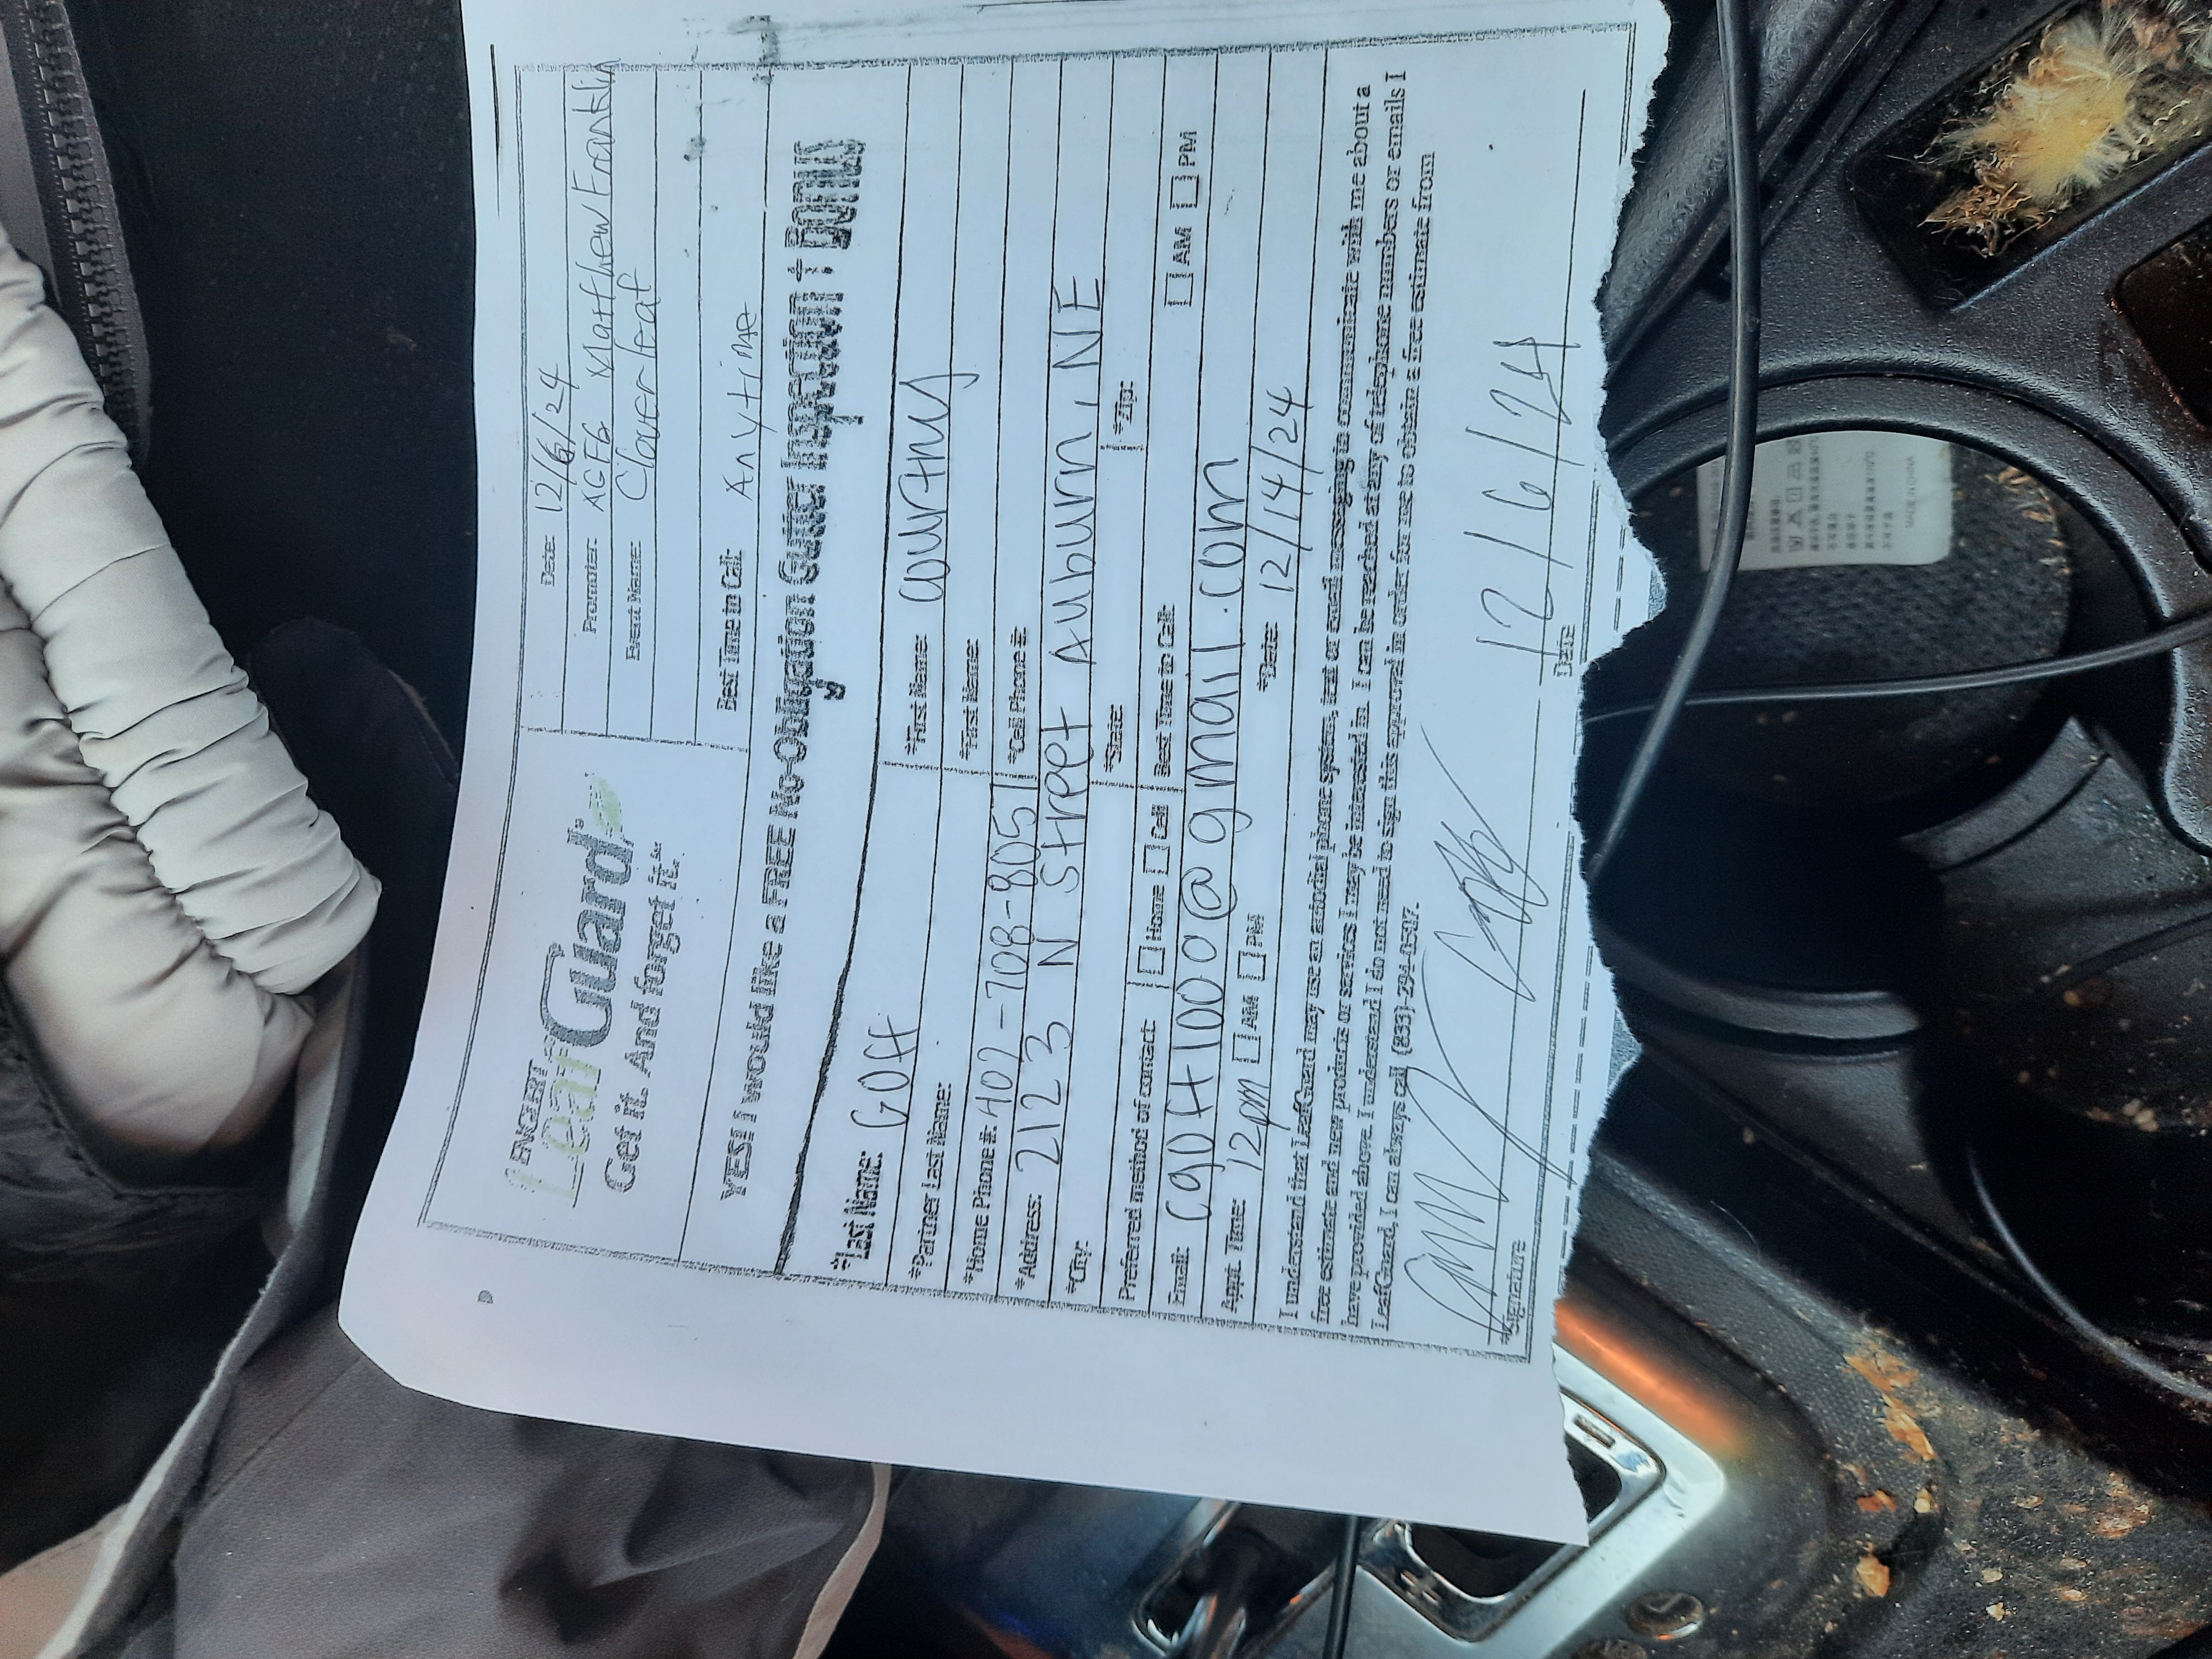 ENGLERT
LeafGuard®
Get it. And forget it.℠
Date: 12/6/24
Promoter: AGFG Matthew Franklin
Event Name: Cloverleaf
Best Time to Call: Anytime
YES! I would like a FREE No-Obligation Gutter Inspection + Bonus
*Last Name: Goff
*First Name: Courtney
*Partner Last Name:
*First Name:
*Home Phone #: 402-708-8057
*Cell Phone #:
*Address: 2123 N Street Auburn, NE
*City:
*State:
*Zip:
Preferred method of contact: Home Cell
Best Time to Call: AM PM
Email: cgoff1000@gmail.com
Appt. Time: 12pm AM PM
*Date: 12/14/24
I understand that LeafGuard may use an autodial phone system, text or email messaging to communicate with me about a
free estimate and new products or services I may be interested in. I can be reached at any of telephone numbers or emails I
have provided above. I understand I do not need to sign this approval in order for me to obtain a free estimate from
LeafGuard, I can always call (833)-294-0507.
*Signature
12/6/24
Date
MADE IN CHINA